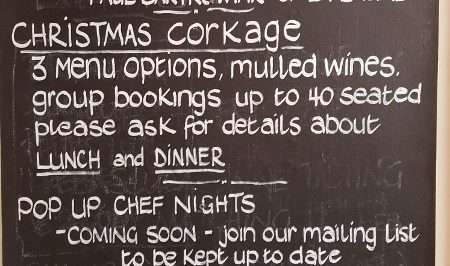 CHRISTMAS CORKAGE
3 MENU OPTIONS, MULLED WINES.
group bookings up to 40 seated
please ask for details about
LUNCH and DINNER
POP UP CHEF NIGHTS
- COMING SOON - join our mailing list
to be kept up to date